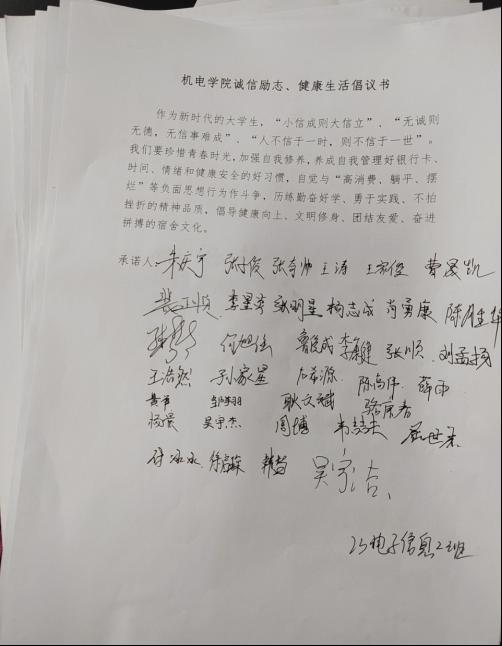 机电学院诚信励志、健康生活倡议书
作为新时代的大学生，“小信成则大信立”、“无诚则
无德，无信事难成”、“人不信于一时，则不信于一世”。
我们要珍惜青春时光，加强自我修养，养成自我管理好银行卡、
时间、情绪和健康安全的好习惯，自觉与“高消费、躺平、摆
烂”等负面思想行为作斗争，历练勤奋好学、勇于实践、不怕
挫折的精神品质，倡导健康向上、文明修身、团结友爱、奋进
拼搏的宿舍文化。
承诺人: 张奇帅 王涛 王家俊
李星 张明星 杨志成 肖勇康 陈
何旭 张顺 刘孟扬
王浩然 孙家星 陈高伟 薛雨
黄 耿文斌
杨景 吴宇杰 周博
徐 韩 吴宇洁
电子信息2班